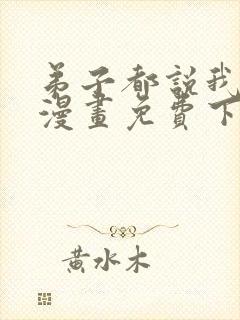 弟子都說我
漫畫免費下
黃水木